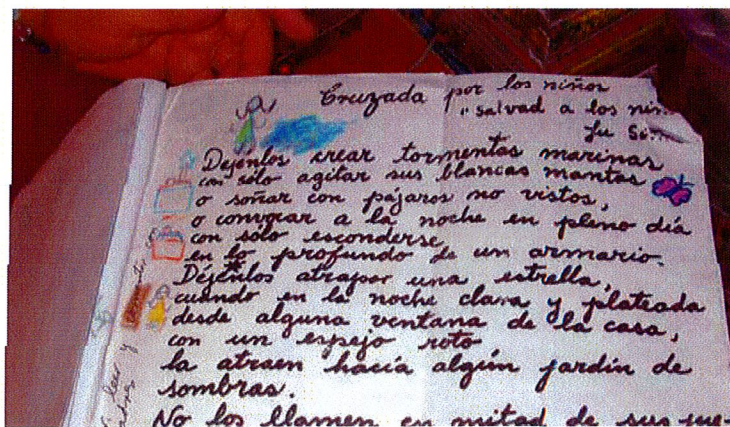 Cruzada por los niños
"salvad a los
Dejenlos crear tormentas marinas
con sólo agitar sus blancas mantas
o soñar con pájaros no vistos,
o convocar a la noche en pleno día
con sólo esconderse
en lo profundo de un armario.
Déjenlos atrapar una estrella,
cuando en la noche clara y plateada
desde alguna ventana de la casa,
con un espejo roto
la atraen hacia algún jardín de
sombras.
No los llamen en mitad de sus jue-
leer y